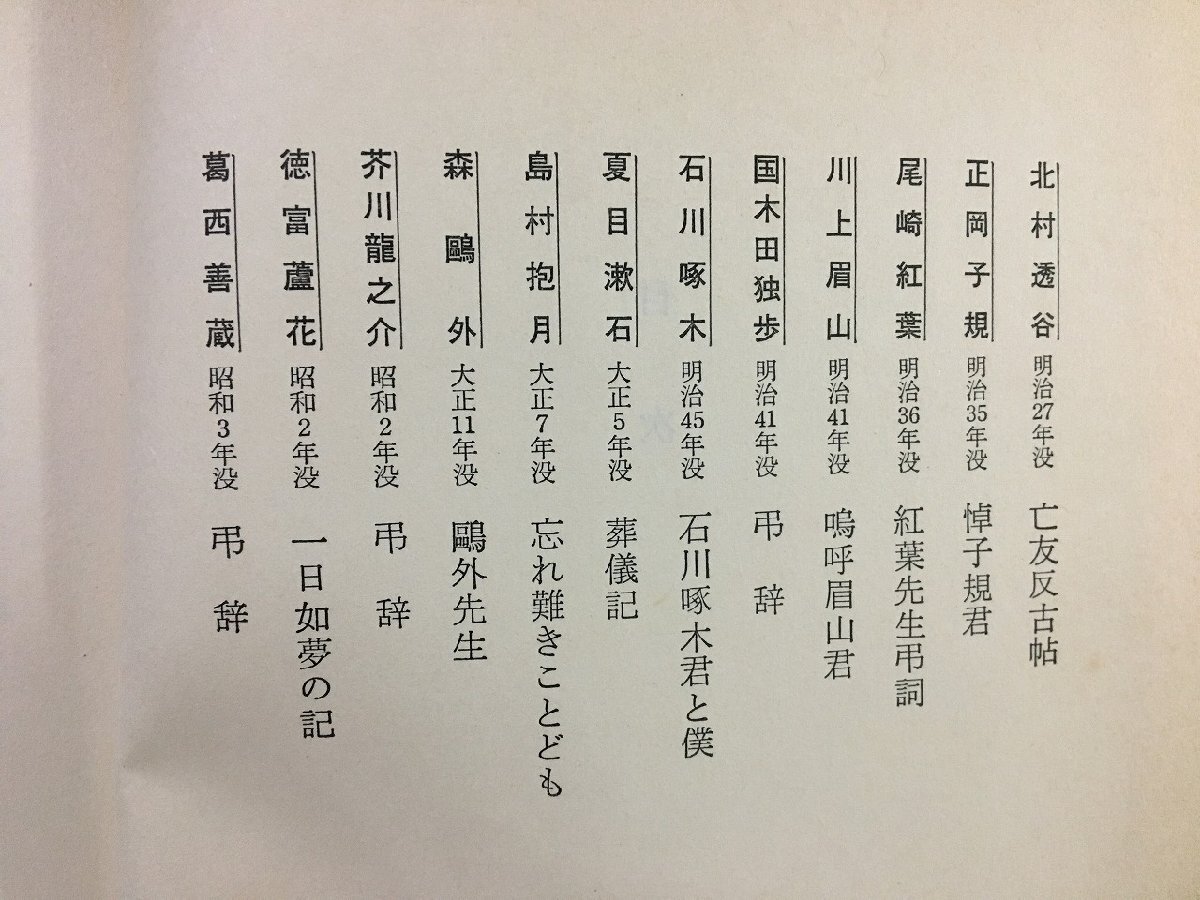 北村透谷 明治27年没 亡友反古帖
正岡子規 明治35年没 悼子規君
尾崎紅葉 明治36年没 紅葉先生弔詞
川上眉山 明治41年没 嗚呼眉山君
国木田独歩 明治41年没 弔辞
石川啄木 明治45年没 石川啄木君と僕
夏目漱石 大正5年没 葬儀記
島村抱月 大正7年没 忘れ難きことども
森鷗外 大正11年没 鷗外先生
芥川龍之介 昭和2年没 弔辞
徳富蘆花 昭和2年没 一日如夢の記
葛西善蔵 昭和3年没 弔辞